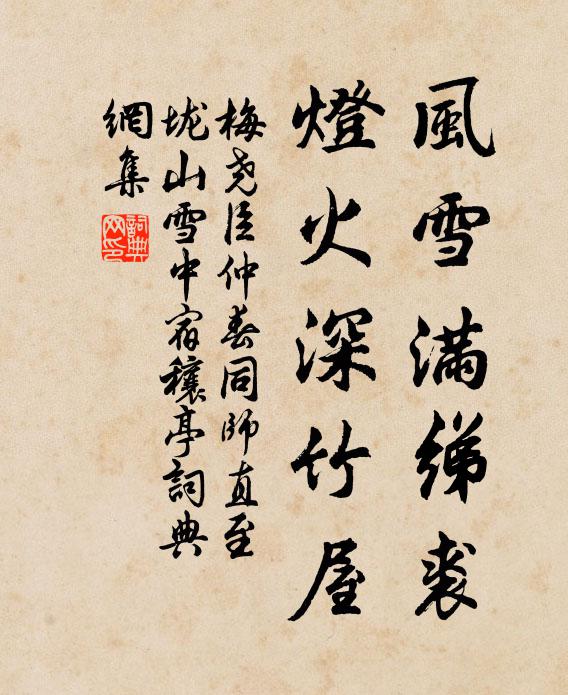 風雪滿綈裘
燈火深竹屋
梅堯臣仲春同師直至
垅山雪中宿穰亭詞典
網集
詞典网印